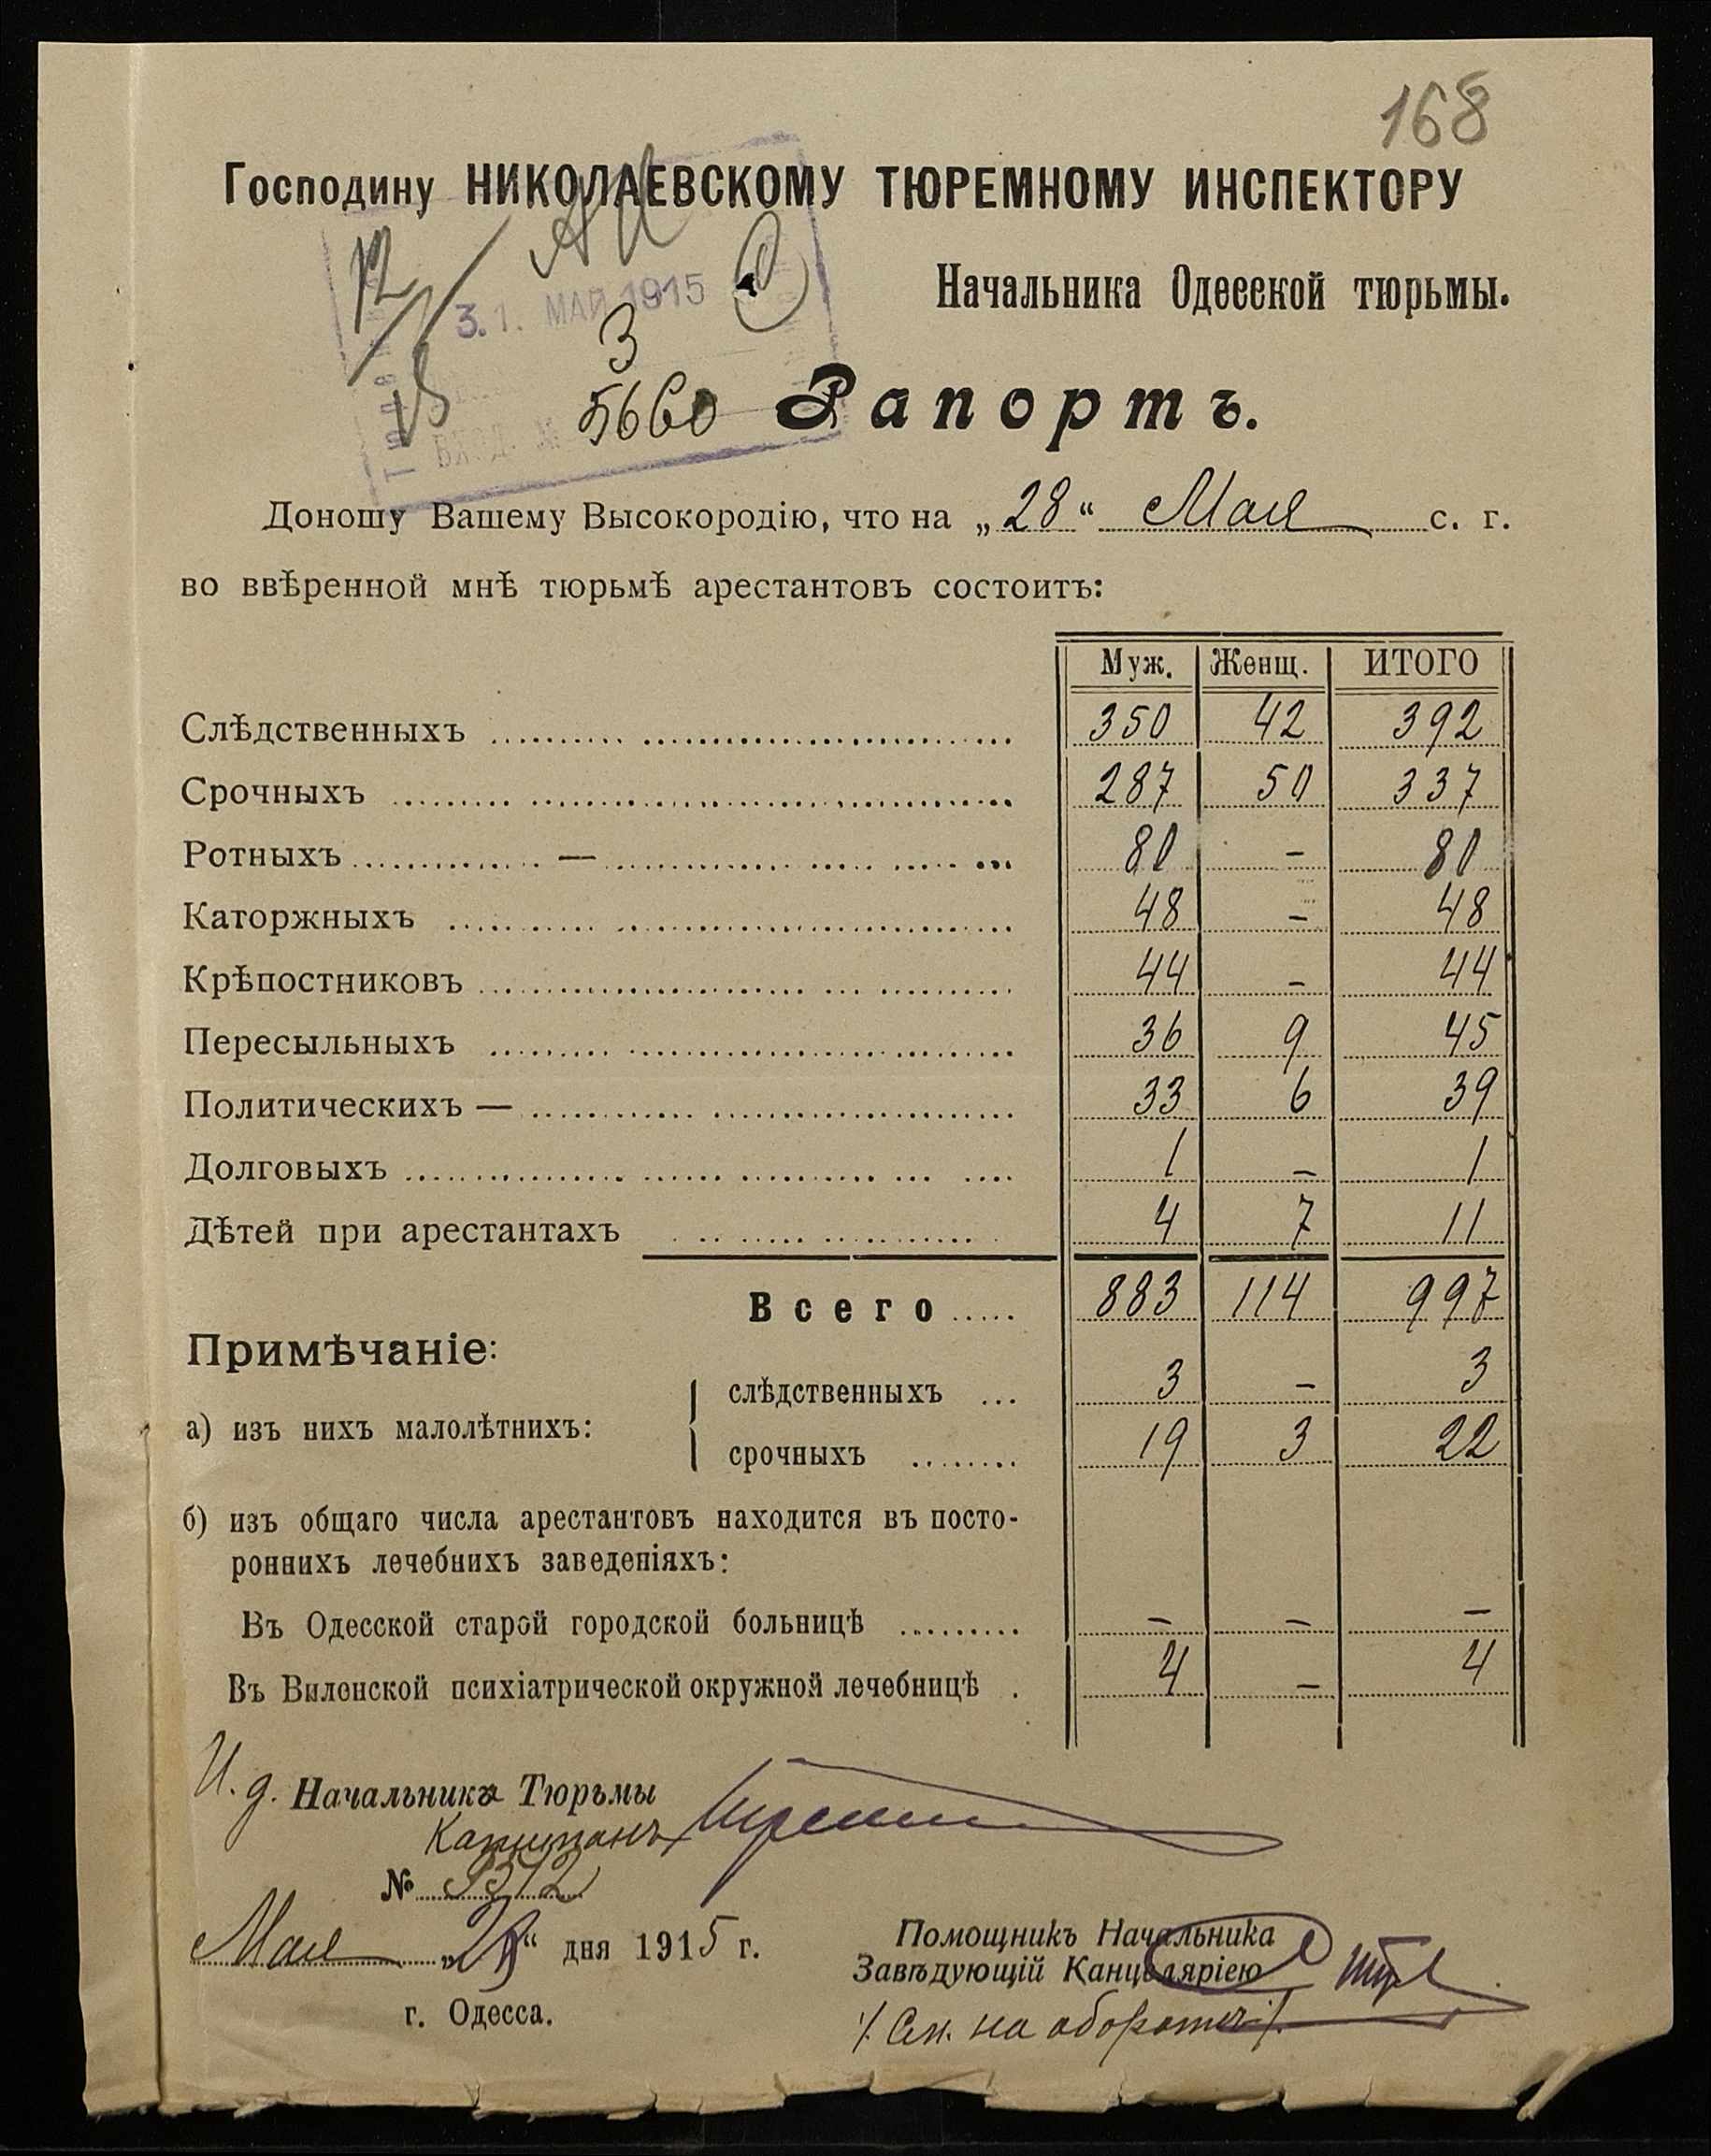 168
Господину НИКОЛАЕВСКОМУ ТЮРЕМНОМУ ИНСПЕКТОРУ
Начальника Одесской тюрьмы.
31. МАЙ 1915
3
5660
Рапортъ.
Доношу Вашему Высокородію, что на „28“ Мая с. г.
во ввѣренной мнѣ тюрьмѣ арестантовъ состоитъ:
Муж. Женщ. ИТОГО
Слѣдственныхъ 350 42 392
Срочныхъ 287 50 337
Ротныхъ — 80 - 80
Каторжныхъ 48 - 48
Крѣпостниковъ 44 - 44
Пересыльныхъ 36 9 45
Политическихъ — 33 6 39
Долговыхъ 1 - 1
Дѣтей при арестантахъ 4 7 11
Всего 883 114 997
Примѣчаніе:
слѣдственныхъ 3 - 3
а) изъ нихъ малолѣтнихъ:
срочныхъ 19 3 22
б) изъ общаго числа арестантовъ находится въ посто-
роннихъ лечебнихъ заведеніяхъ:
Въ Одесской старой городской больницѣ - - -
Въ Виленской психіатрической окружной лечебницѣ 4 - 4
И. д. Начальника Тюрьмы
Капитанъ
№ 9312
Мая „28“ дня 1915 г.
г. Одесса.
Помощникъ Начальника
Завѣдующій Канцеляріею
/. См. на оборотѣ /.